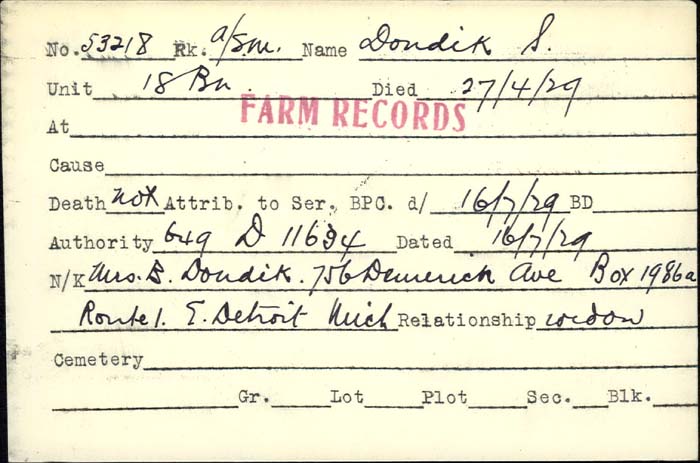 No. 53218 Rk. a/s.m. Name Dondik S.
Unit 18 Bn. Died 27/4/29
FARM RECORDS
At
Cause
Death not Attrib. to Ser. BPC. d/ 16/7/29 BD
Authority 649 D 11634 Dated 16/7/29
N/K Mrs. B. Dondik. 756 Demerick Ave Box 1986a
Route 1. E. Detroit Mich Relationship widow
Cemetery
Gr. Lot Plot Sec. Blk.